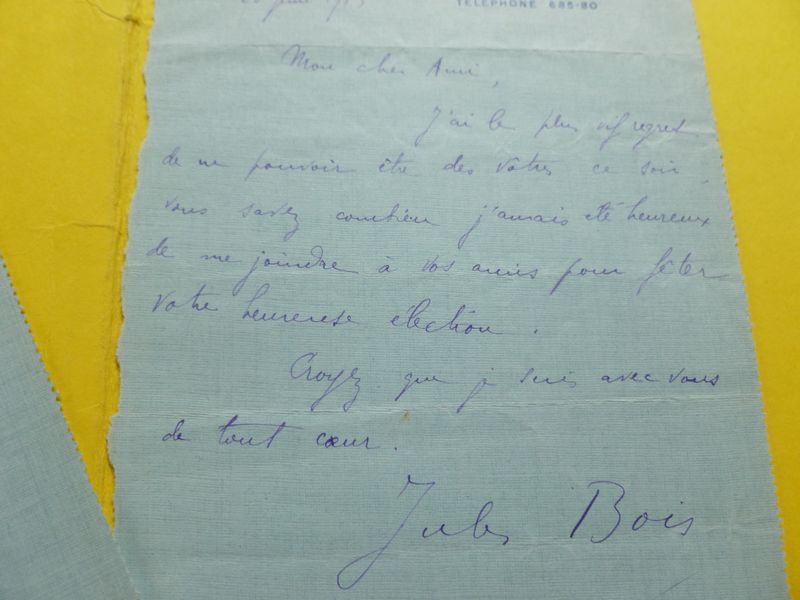 TÉLÉPHONE 685-80
Mon cher Ami,
J'ai le plus vif regret
de ne pouvoir être des vôtres ce soir,
vous savez combien j'aurais été heureux
de me joindre à vos amis pour fêter
votre heureuse élection.
Croyez que je suis avec vous
de tout cœur.
Jules Bois